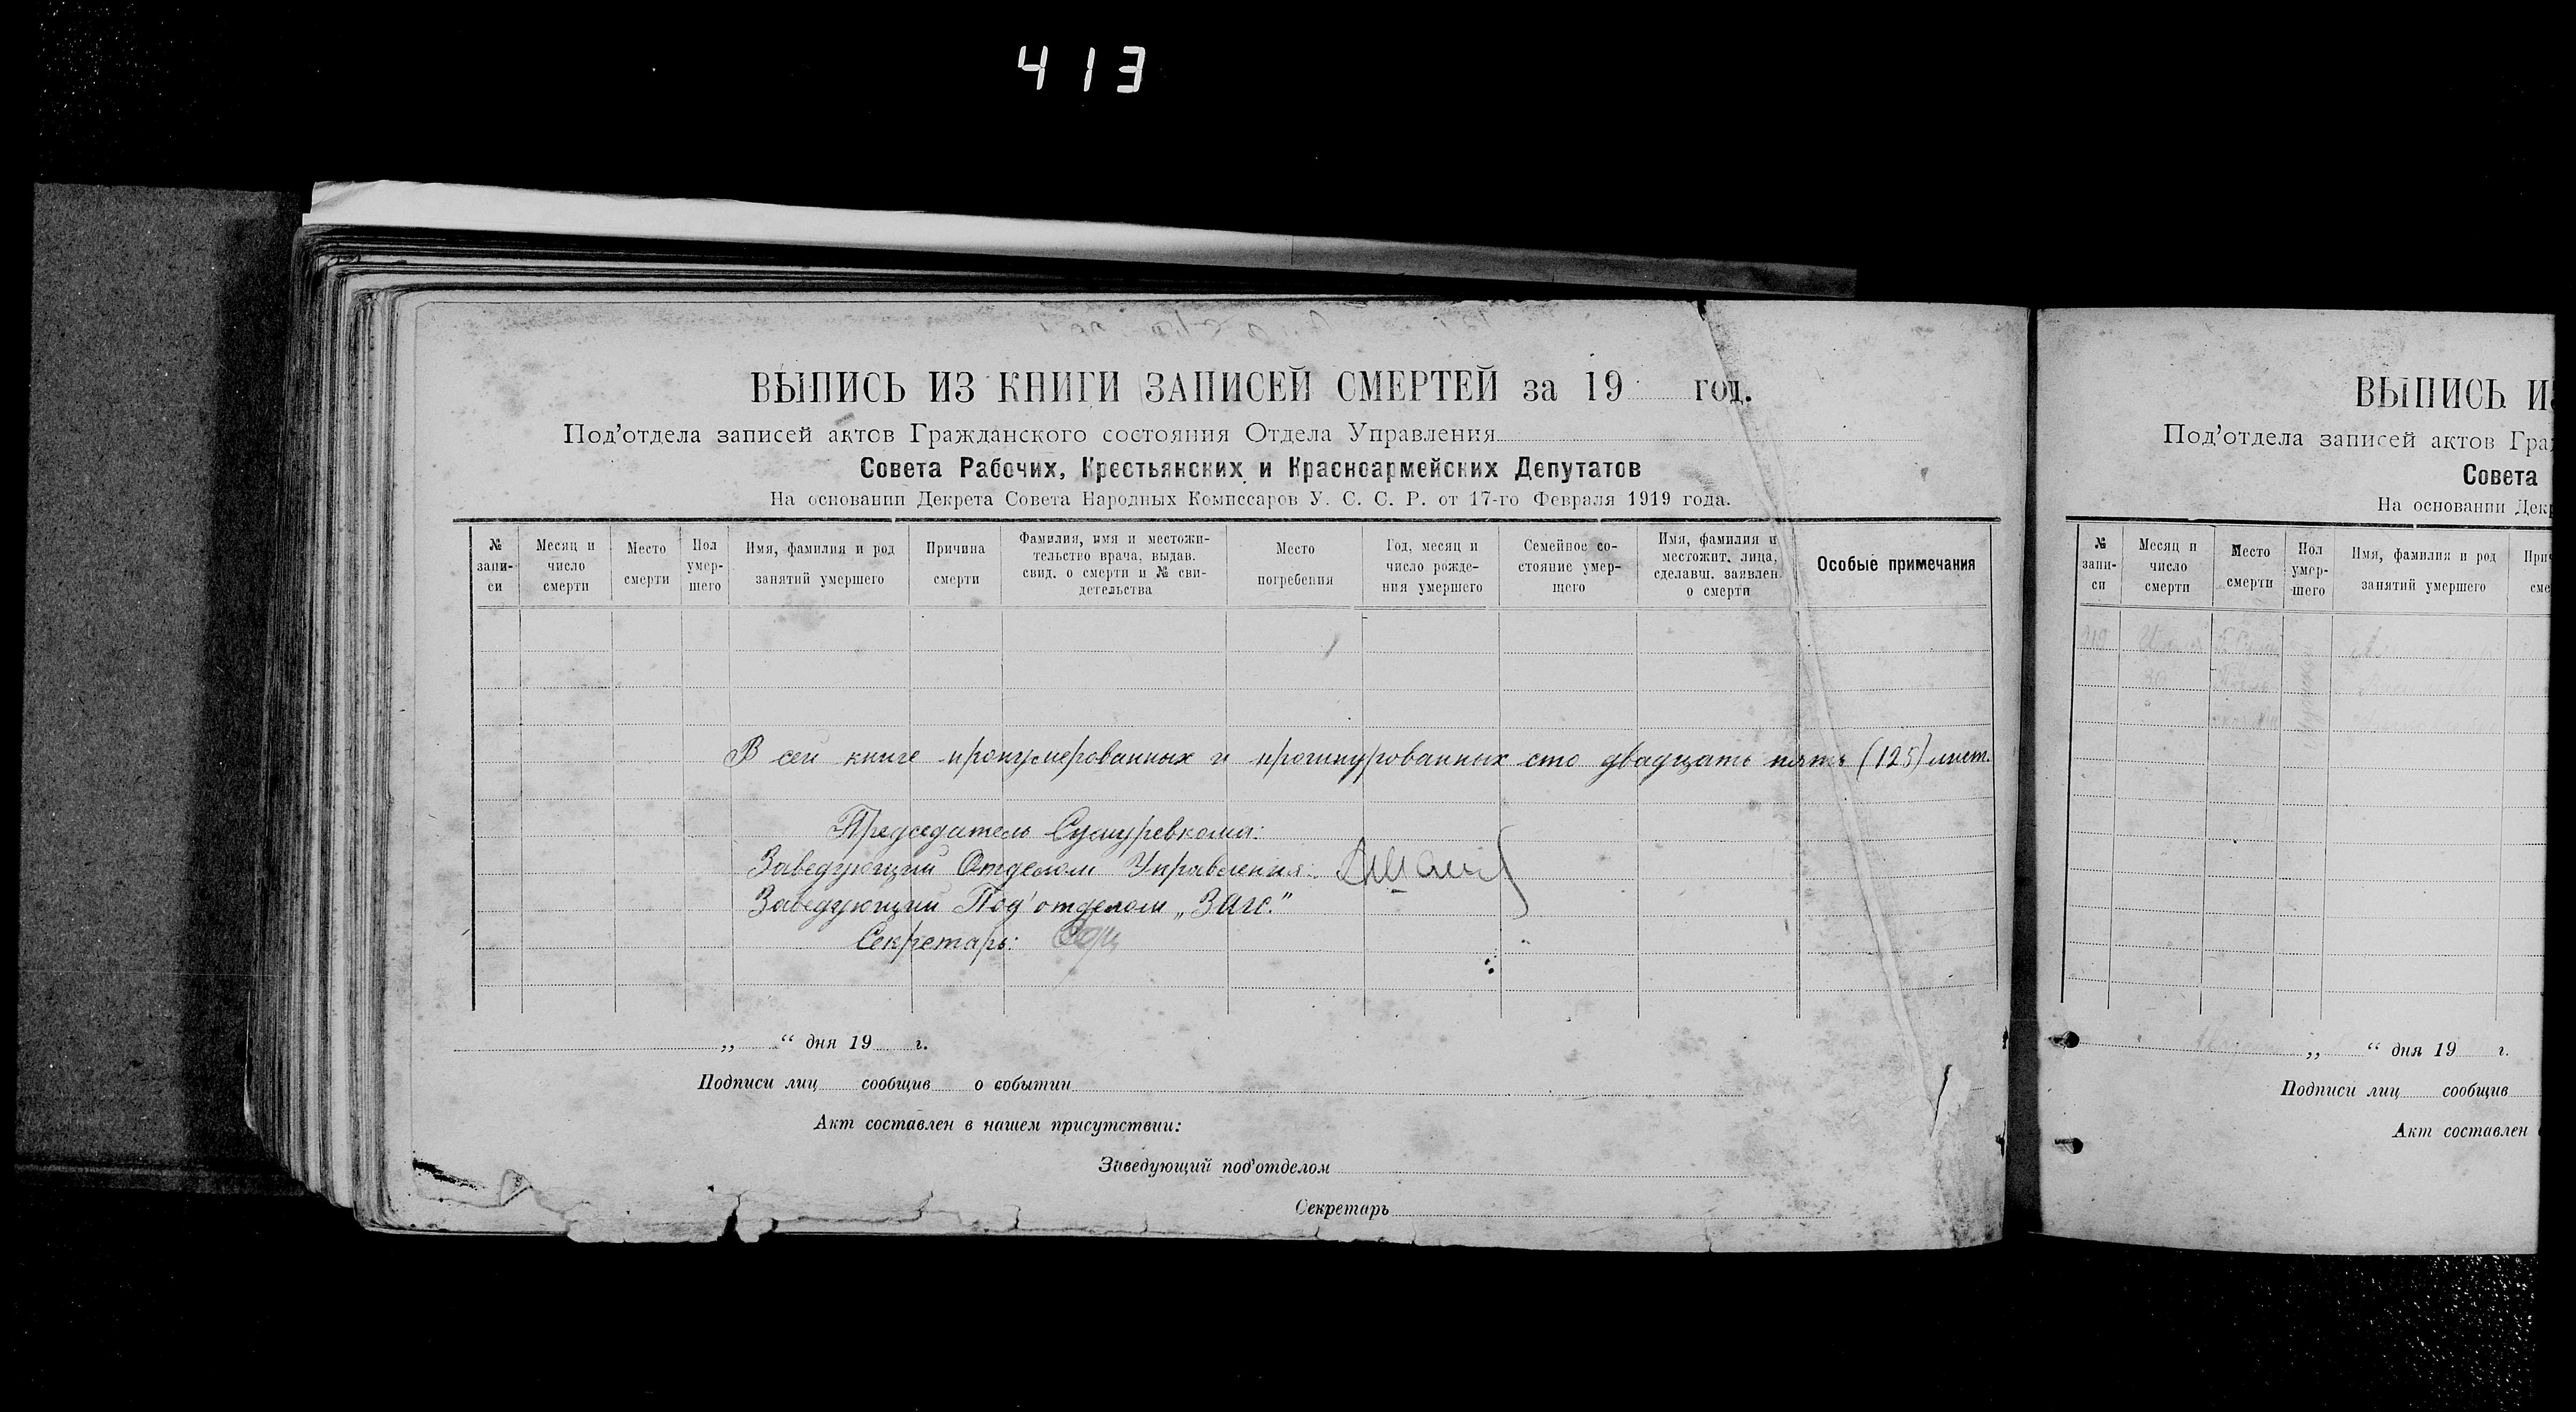 413
ВЫПИСЬ ИЗ КНИГИ ЗАПИСЕЙ СМЕРТЕЙ за 19 год.
Под'отдела записей актов Гражданского состояния Отдела Управления
Совета Рабочих, Крестьянских и Красноармейских Депутатов
На основании Декрета Совета Народных Комиссаров У. С. С. Р. от 17-го Февраля 1919 года.
№ запи-си
Месяц и число смерти
Место смерти
Пол умер-шего
Имя, фамилия и род занятий умершего
Причина смерти
Фамилия, имя и местожи-тельство врача, выдав. свид. о смерти и № сви-детельства
Место погребения
Год, месяц и число рожде-ния умершего
Семейное со-стояние умер-щего
Имя, фамилия и местожит. лица, сделавш. заявлен. о смерти
Особые примечания
В сей книге пронумерованных и прошнурованных сто двадцать пять (125) лист.
Председатель
Заведующий Отделом Управления:
Заведующий Под'отделом „Загс."
Секретарь:
„ “ дня 19 г.
Подписи лиц сообщив о событии
Акт составлен в нашем присутствии:
Заведующий под'отделом
Секретарь
ВЫПИСЬ
Под'отдела записей актов
Совета
На основании
№ запи-си
Месяц и число смерти
Место смерти
Пол умер-шего
Имя, фамилия и род занятий умершего
30
„ “ дня 19 г.
Подписи лиц сообщив
Акт составлен